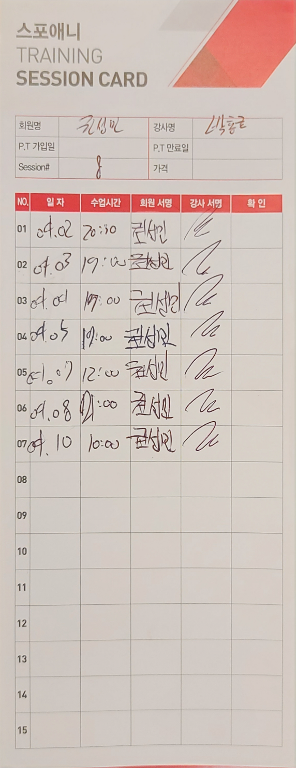 스포애니
TRAINING
SESSION CARD
회원명 권성민 강사명
P.T 가입일 P.T 만료일
Session# 8 가격
NO. 일 자 수업시간 회원 서명 강사 서명 확 인
01 09.02 20:30 권성민
02 09.03 19:00 권성민
03 09.04 19:00 권성민
04 09.05 19:00 권성민
05 09.07 12:00 권성민
06 09.08 21:00 권성민
07 09.10 10:00 권성민
08
09
10
11
12
13
14
15